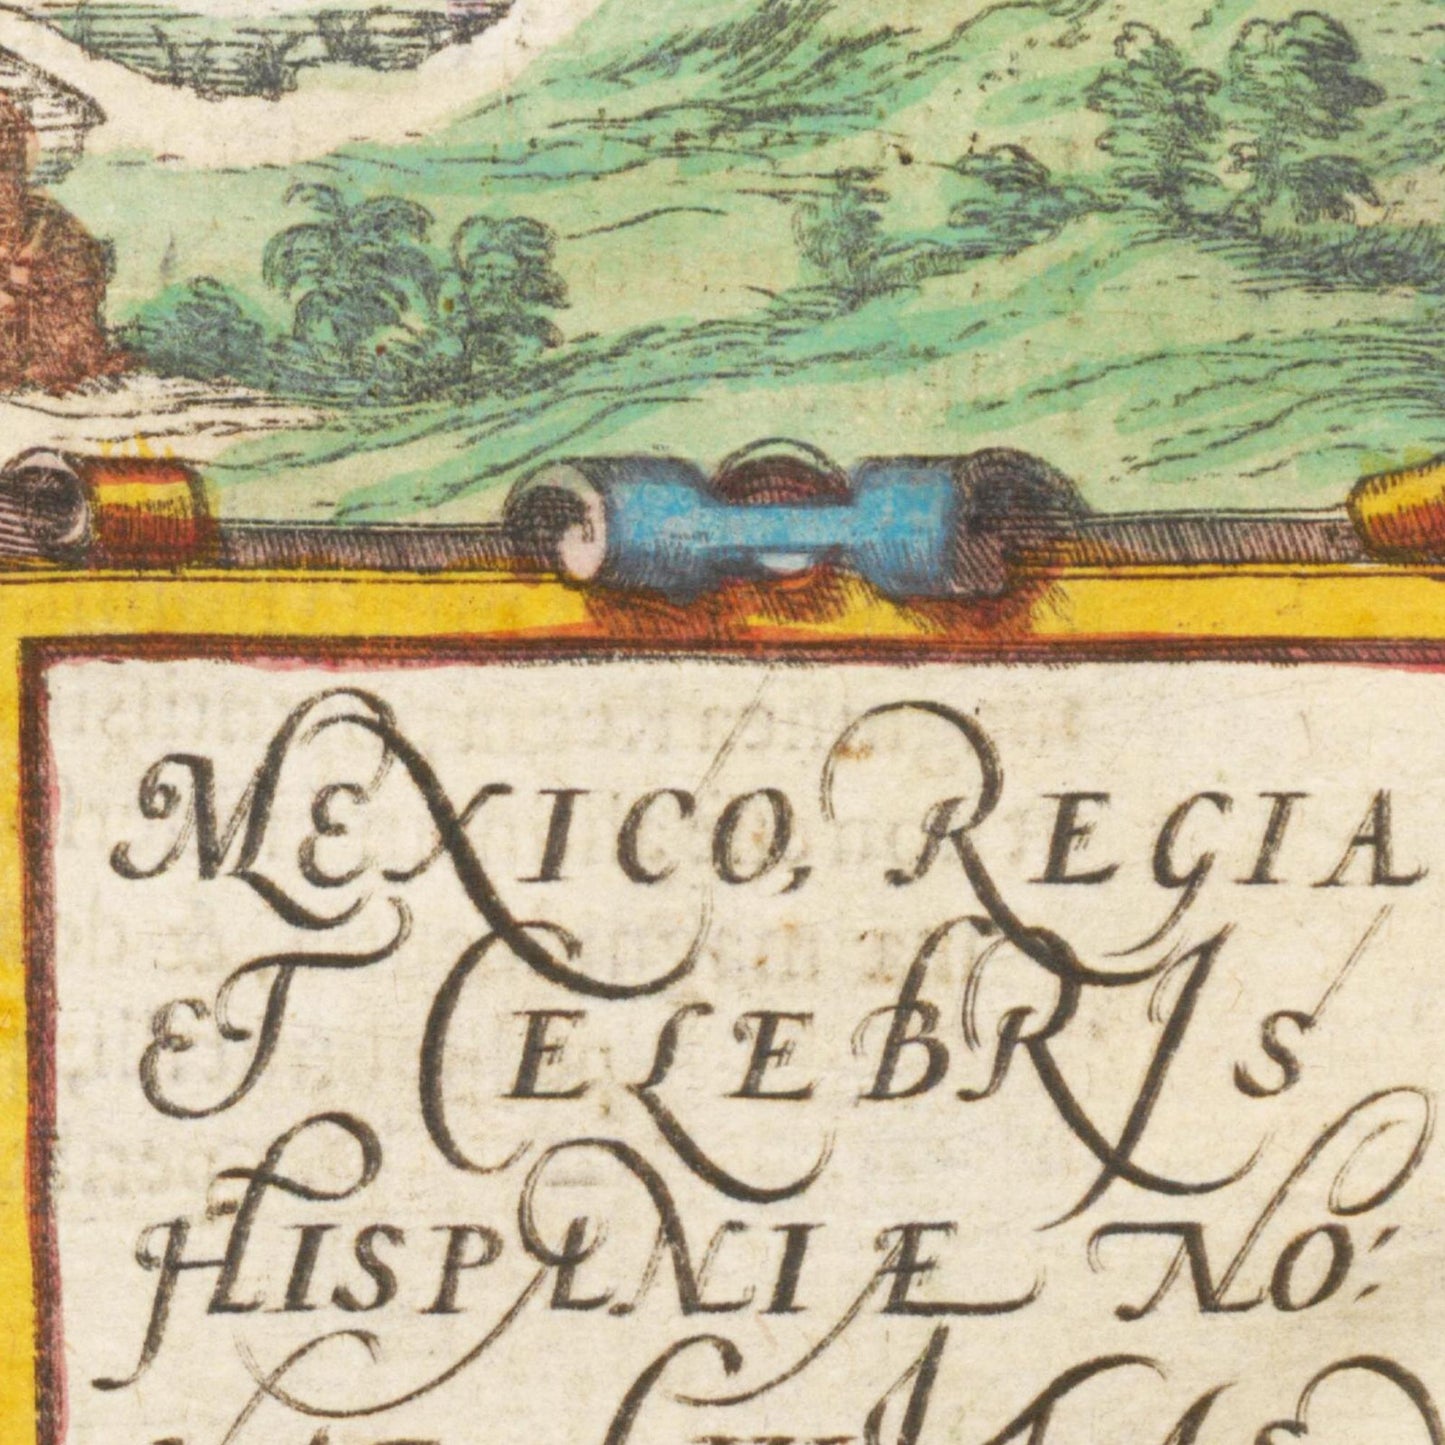 MEXICO, REGIA
ET CELEBRIS
HISPANIÆ NO: